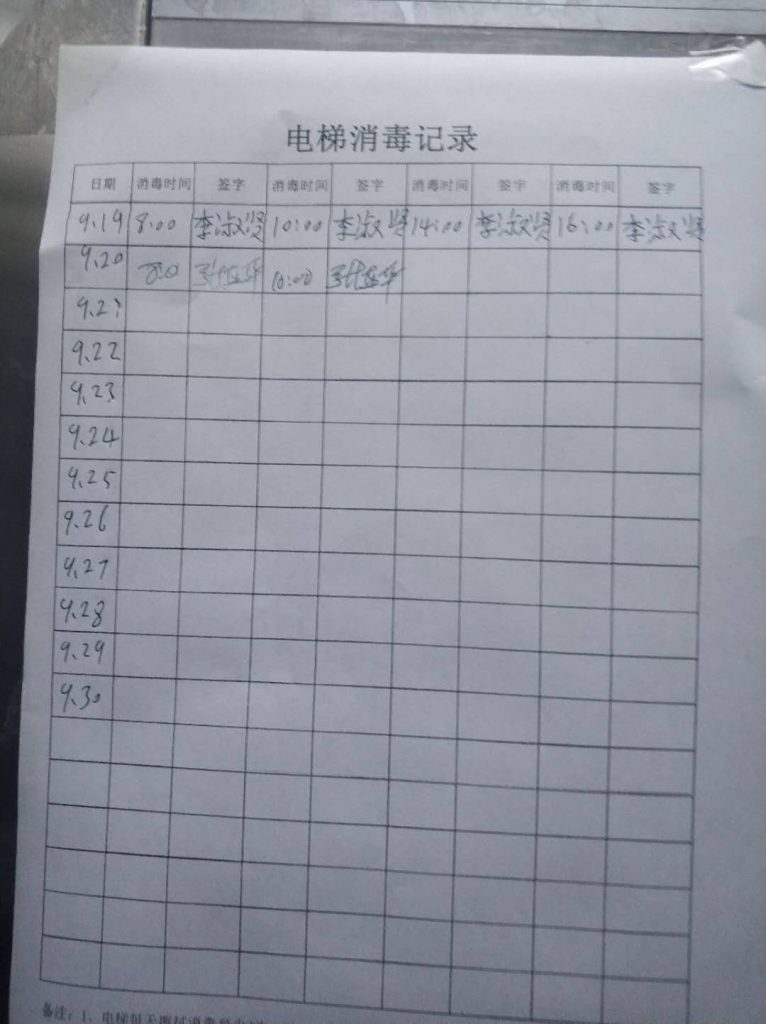 电梯消毒记录
日期 消毒时间 签字 消毒时间 签字 消毒时间 签字 消毒时间 签字
9.19 8:00 李淑贤 10:00 李淑贤 14:00 李淑贤 16:00 李淑贤
9.20 8:00 10:00
9.21
9.22
9.23
9.24
9.25
9.26
9.27
9.28
9.29
9.30
备注：1、电梯每天擦拭消毒